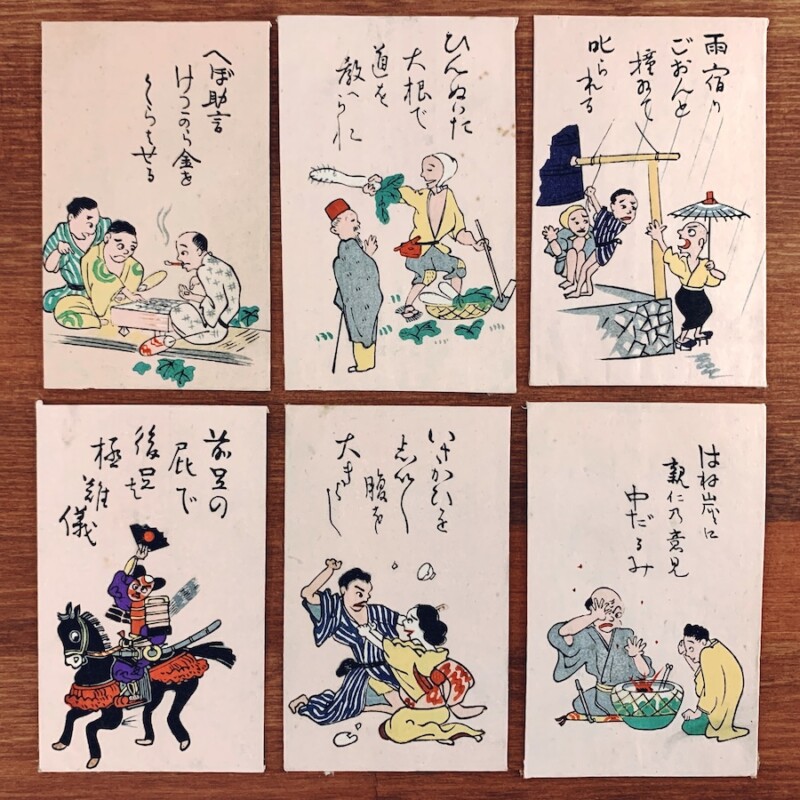 へぼ助言
けつから金を
くらはせる
ひんぬいた
大根で
道を
教へられ
雨宿り
ごおんと
撞いて
叱られる
前足の
屁で
後足は
極難儀
いさかひを
しいしい
腹を
大きくし
はね炭に
親仁乃意見
中だるみ